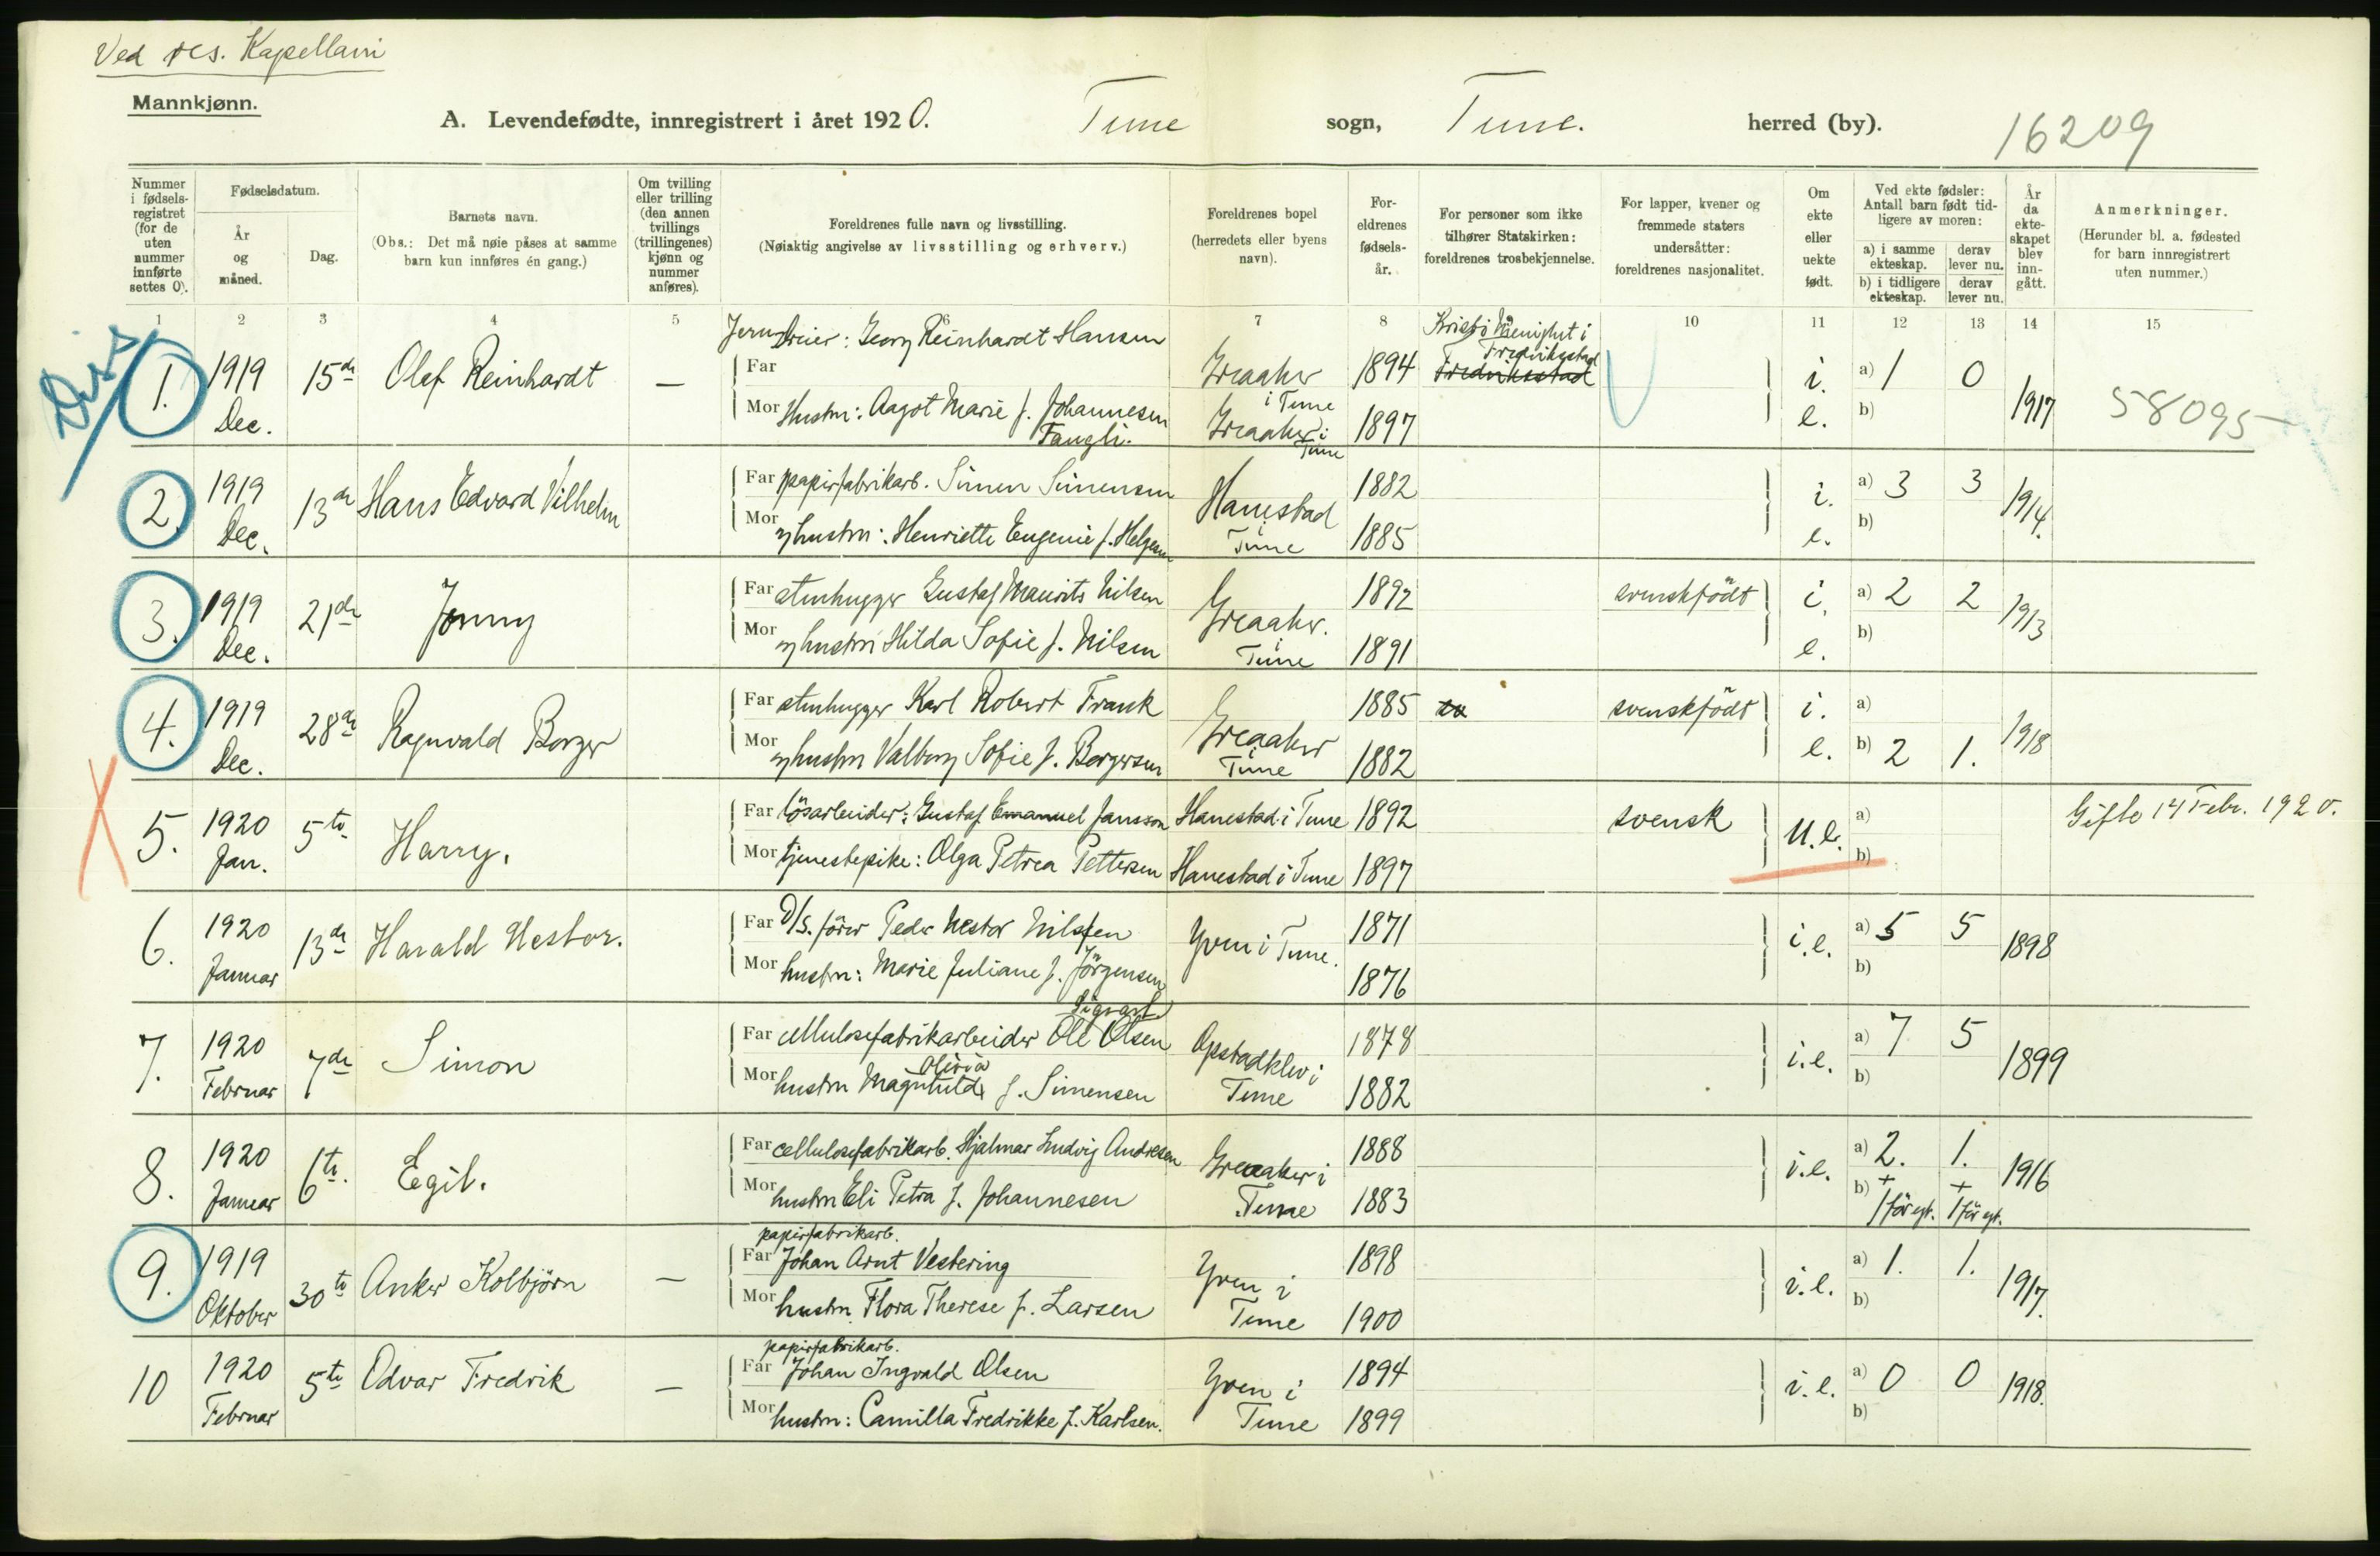 Ved res. Kapellani
Mannkjønn.
A. Levendefødte, innregistrert i året 1920. Tune sogn, Tune. herred (by). 16209
Nummer i fødselsregistret (for de uten nummer innførte settes 0).
Fødselsdatum.
År og måned.
Dag.
Barnets navn.
(Obs.: Det må nøie påses at samme barn kun innføres én gang.)
Om tvilling eller trilling (den annen tvillings (trillingenes) kjønn og nummer anføres).
Foreldrenes fulle navn og livsstilling.
(Nøiaktig angivelse av livsstilling og erhverv.)
Foreldrenes bopel (herredets eller byens navn).
Foreldrenes fødselsår.
For personer som ikke tilhører Statskirken: foreldrenes trosbekjennelse.
For lapper, kvener og fremmede staters undersåtter: foreldrenes nasjonalitet.
Om ekte eller uekte født.
Ved ekte fødsler: Antall barn født tidligere av moren:
a) i samme ekteskap. derav lever nu.
b) i tidligere ekteskap. derav lever nu.
År da ekteskapet blev inngått.
Anmerkninger.
(Herunder bl. a. fødested for barn innregistrert uten nummer.)
1 2 3 4 5 6 7 8 10 11 12 13 14 15
Diss
1. 1919 Dec. 15de Olaf Reinhardt —
Jerndreier: Georg Reinhardt Hansen
Far Greaaker i Tune 1894 Kristi Menighet i Fredriksstad Fredriksstad
Mor Hustru: Aagot Marie f. Johannesen Fangli. Greaaker i Tune 1897
i. e. a) 1 0 b) 1917 58095
2. 1919 Dec. 13de Hans Edvard Vilhelm
Far papirfabrikarb. Simen Simensen Hanestad i Tune 1882
Mor hustru: Henriette Eugenie f. Helgesen 1885
i. e. a) 3 3 b) 1914.
3. 1919 Dec. 21de Jonny
Far stenhugger Gustaf Maurits Nilsen Greaaker. i Tune 1892 svenskfödt
Mor hustru Hilda Sofie f. Nilsen 1891
i. e. a) 2 2 b) 1913
4. 1919 Dec. 28de Ragnvald Borger
Far stenhugger Karl Robert Frank Greaaker i Tune 1885 svenskfödt
Mor hustru Valborg Sofie f. Borgersen 1882
i. e. a) b) 2 1. 1918
5. 1920 Jan. 5te Harry.
Far lösarbeider: Gustaf Emanuel Jansson Hanestad i Tune 1892 svensk
Mor tjenestepike: Olga Petrea Pettersen Hanestad i Tune 1897
U.e. a) b) Gifte 14 Febr. 1920.
6. 1920 Januar 13de Harald Nestor.
Far D/S. förer Peder Nestor Nilsen Yven i Tune. 1871
Mor hustru: Marie Juliane f. Jörgensen 1876
i.e. a) 5 5 b) 1898
7. 1920 Februar 7de Simon
Sigvart
Far cellulosefabrikarbeider Ole Olsen Opstadklev i Tune 1878
Olivia
Mor hustru Magnhild f. Simensen 1882
i.e. a) 7 5 b) 1899
8. 1920 Januar 6te. Egil.
Far cellulosefabrikarb. Hjalmar Ludvig Andresen Greaaker i Tune 1888
Mor hustru Eli Petra f. Johannesen 1883
i.e. a) 2. 1. b) + + 1 för egt. 1 för egt. 1916
9. 1919 Oktober 30te Anker Kolbjörn —
papirfabrikarb.
Far Johan Arnt Vestering Yven i Tune 1898
Mor hustru. Flora Therese f. Larsen 1900
i.e. a) 1. 1. b) 1917.
10 1920 Februar 5te Odvar Fredrik —
papirfabrikarb.
Far Johan Ingvald Olsen Yven i Tune 1894
Mor hustru: Camilla Fredrikke f. Karlsen. 1899
i.e. a) 0 0 b) 1918.